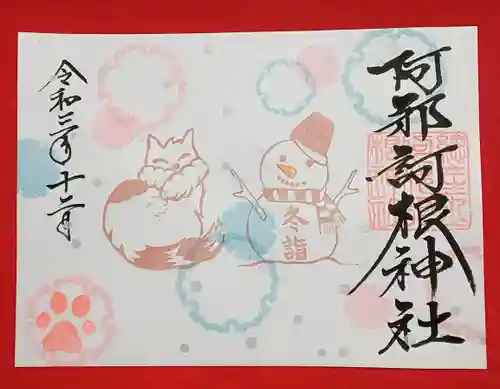 阿邪訶根神社
冬
詣
令和三年十二月